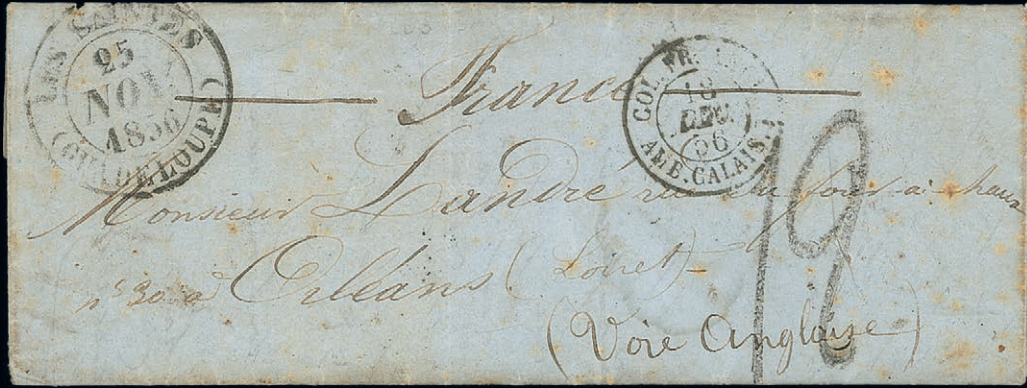 LES SAINTES
25
NOV
1856
(GUADELOUPE)
France
COL. FR.
18
DEC.
56
AMB. CALAIS
Monsieur Landré rue du four à chaux
n° 30 à Orléans (Loiret)
(Voie Anglaise)
12